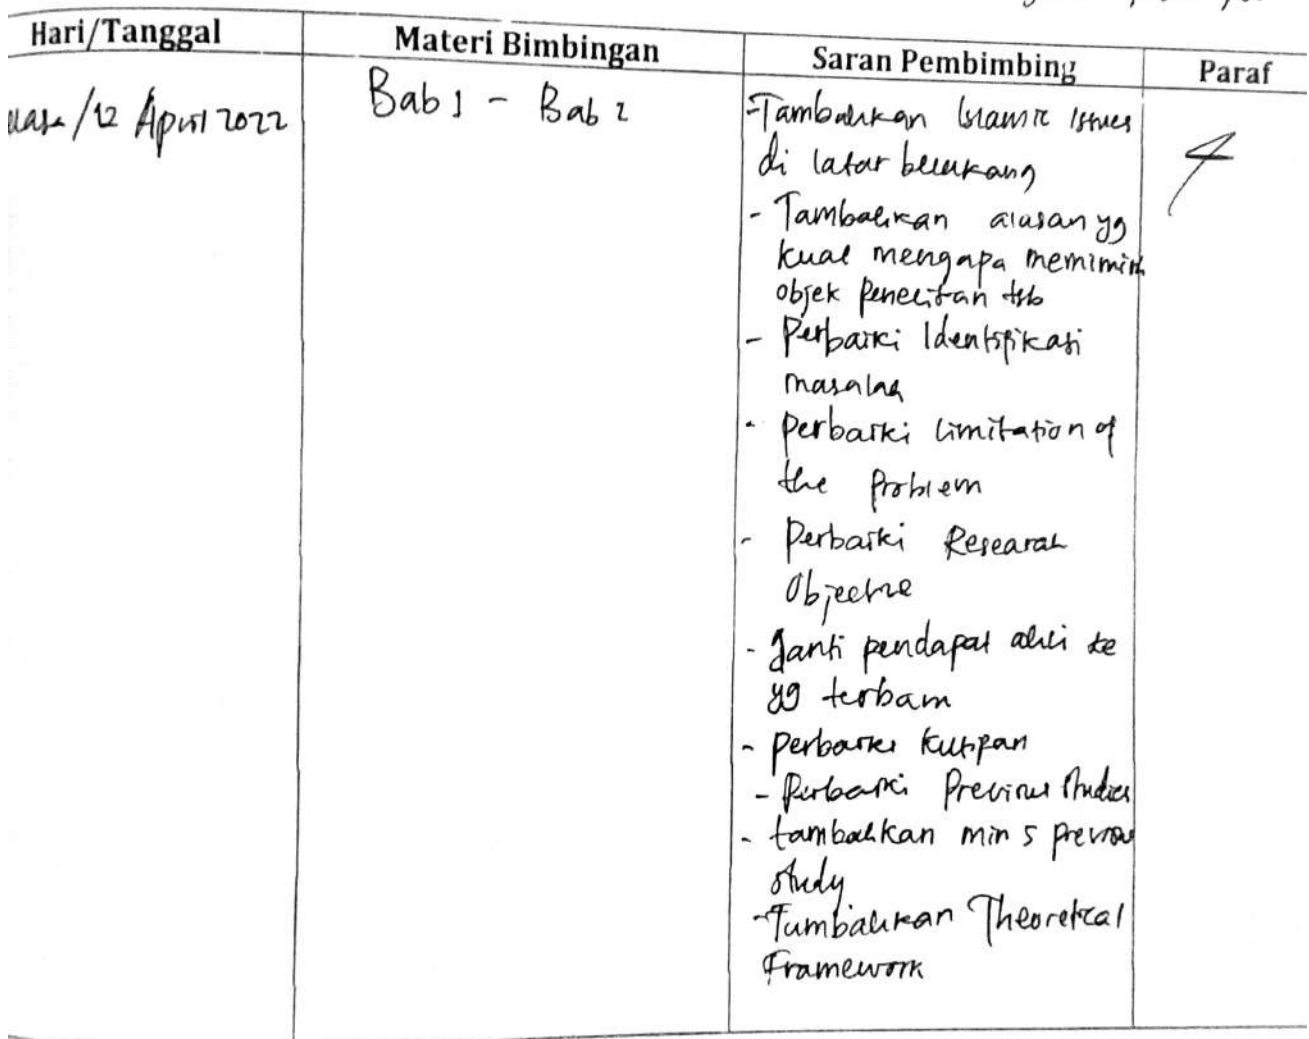 Hari/Tanggal Materi Bimbingan Saran Pembimbing Paraf
/12 April 2022 Bab 1 - Bab 2
- Tambahkan Islamic Issues
di latar belakang
- Tambahkan alasan yg
kuat mengapa memilih
objek penelitian tsb
- Perbaiki Identifikasi
masalah
- Perbaiki limitation of
the Problem
- Perbaiki Research
Objective
- Ganti pendapat ahli ke
yg terbaru
- perbaiki kutipan
- Perbaiki Previous studies
- tambahkan min 5 previous
study
- Tambahkan Theoretical
Framework